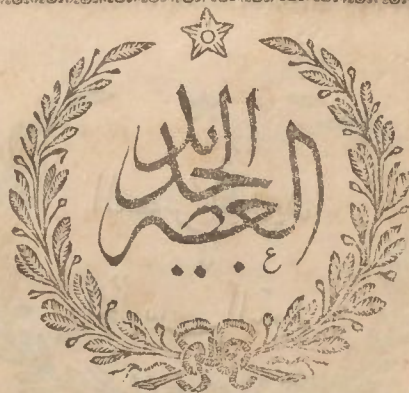 العصر الجديد